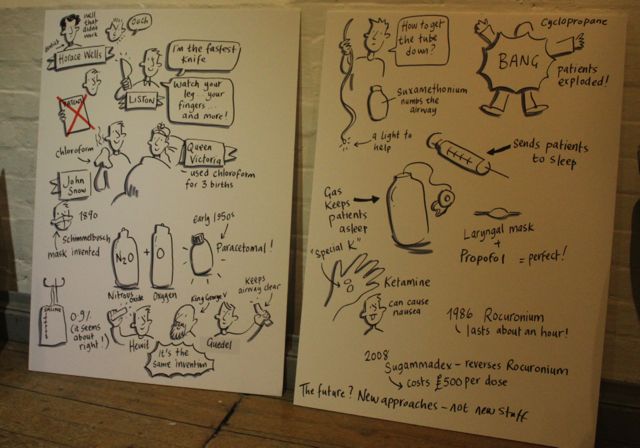 well
that
didn't
work
dentist
Ouch
Horace Wells
I'm the fastest
knife
Watch your
leg... your
fingers...
and more!
LISTON
PATENT
chloroform
John
Snow
Queen
Victoria
used chloroform
for 3 births
1890
Schimmelbusch
mask invented
N2O
+
O
Nitrous
Oxide
Oxygen
early 1950s
Paracetomol!
SALINE
0.9%
(a seems
about
right!)
Hewit
King George V
Guedel
Keeps
airway clear
It's the
same invention
How to get
the tube
down?
Suxamethonium
numbs the
airway
a light to
help
Cyclopropane
BANG
patients
exploded!
Sends patients
to sleep
Gas
Keeps
patients
asleep
Laryngal mask
+
Propofol = perfect!
"Special K"
Ketamine
can cause
nausea
1986 Rocuronium
lasts about an hour!
2008
Sugammadex - reverses Rocuronium
costs £500 per dose
The future? New approaches - not new stuff